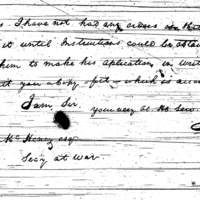 I have not had any orders on that
it until Instructions could be obtain
him to make his application in writ
it you a Copy of it - which is accom
I am, Sir,
your very ob. Hb. Serv.
Mc Henry esqr
Sec'y at War